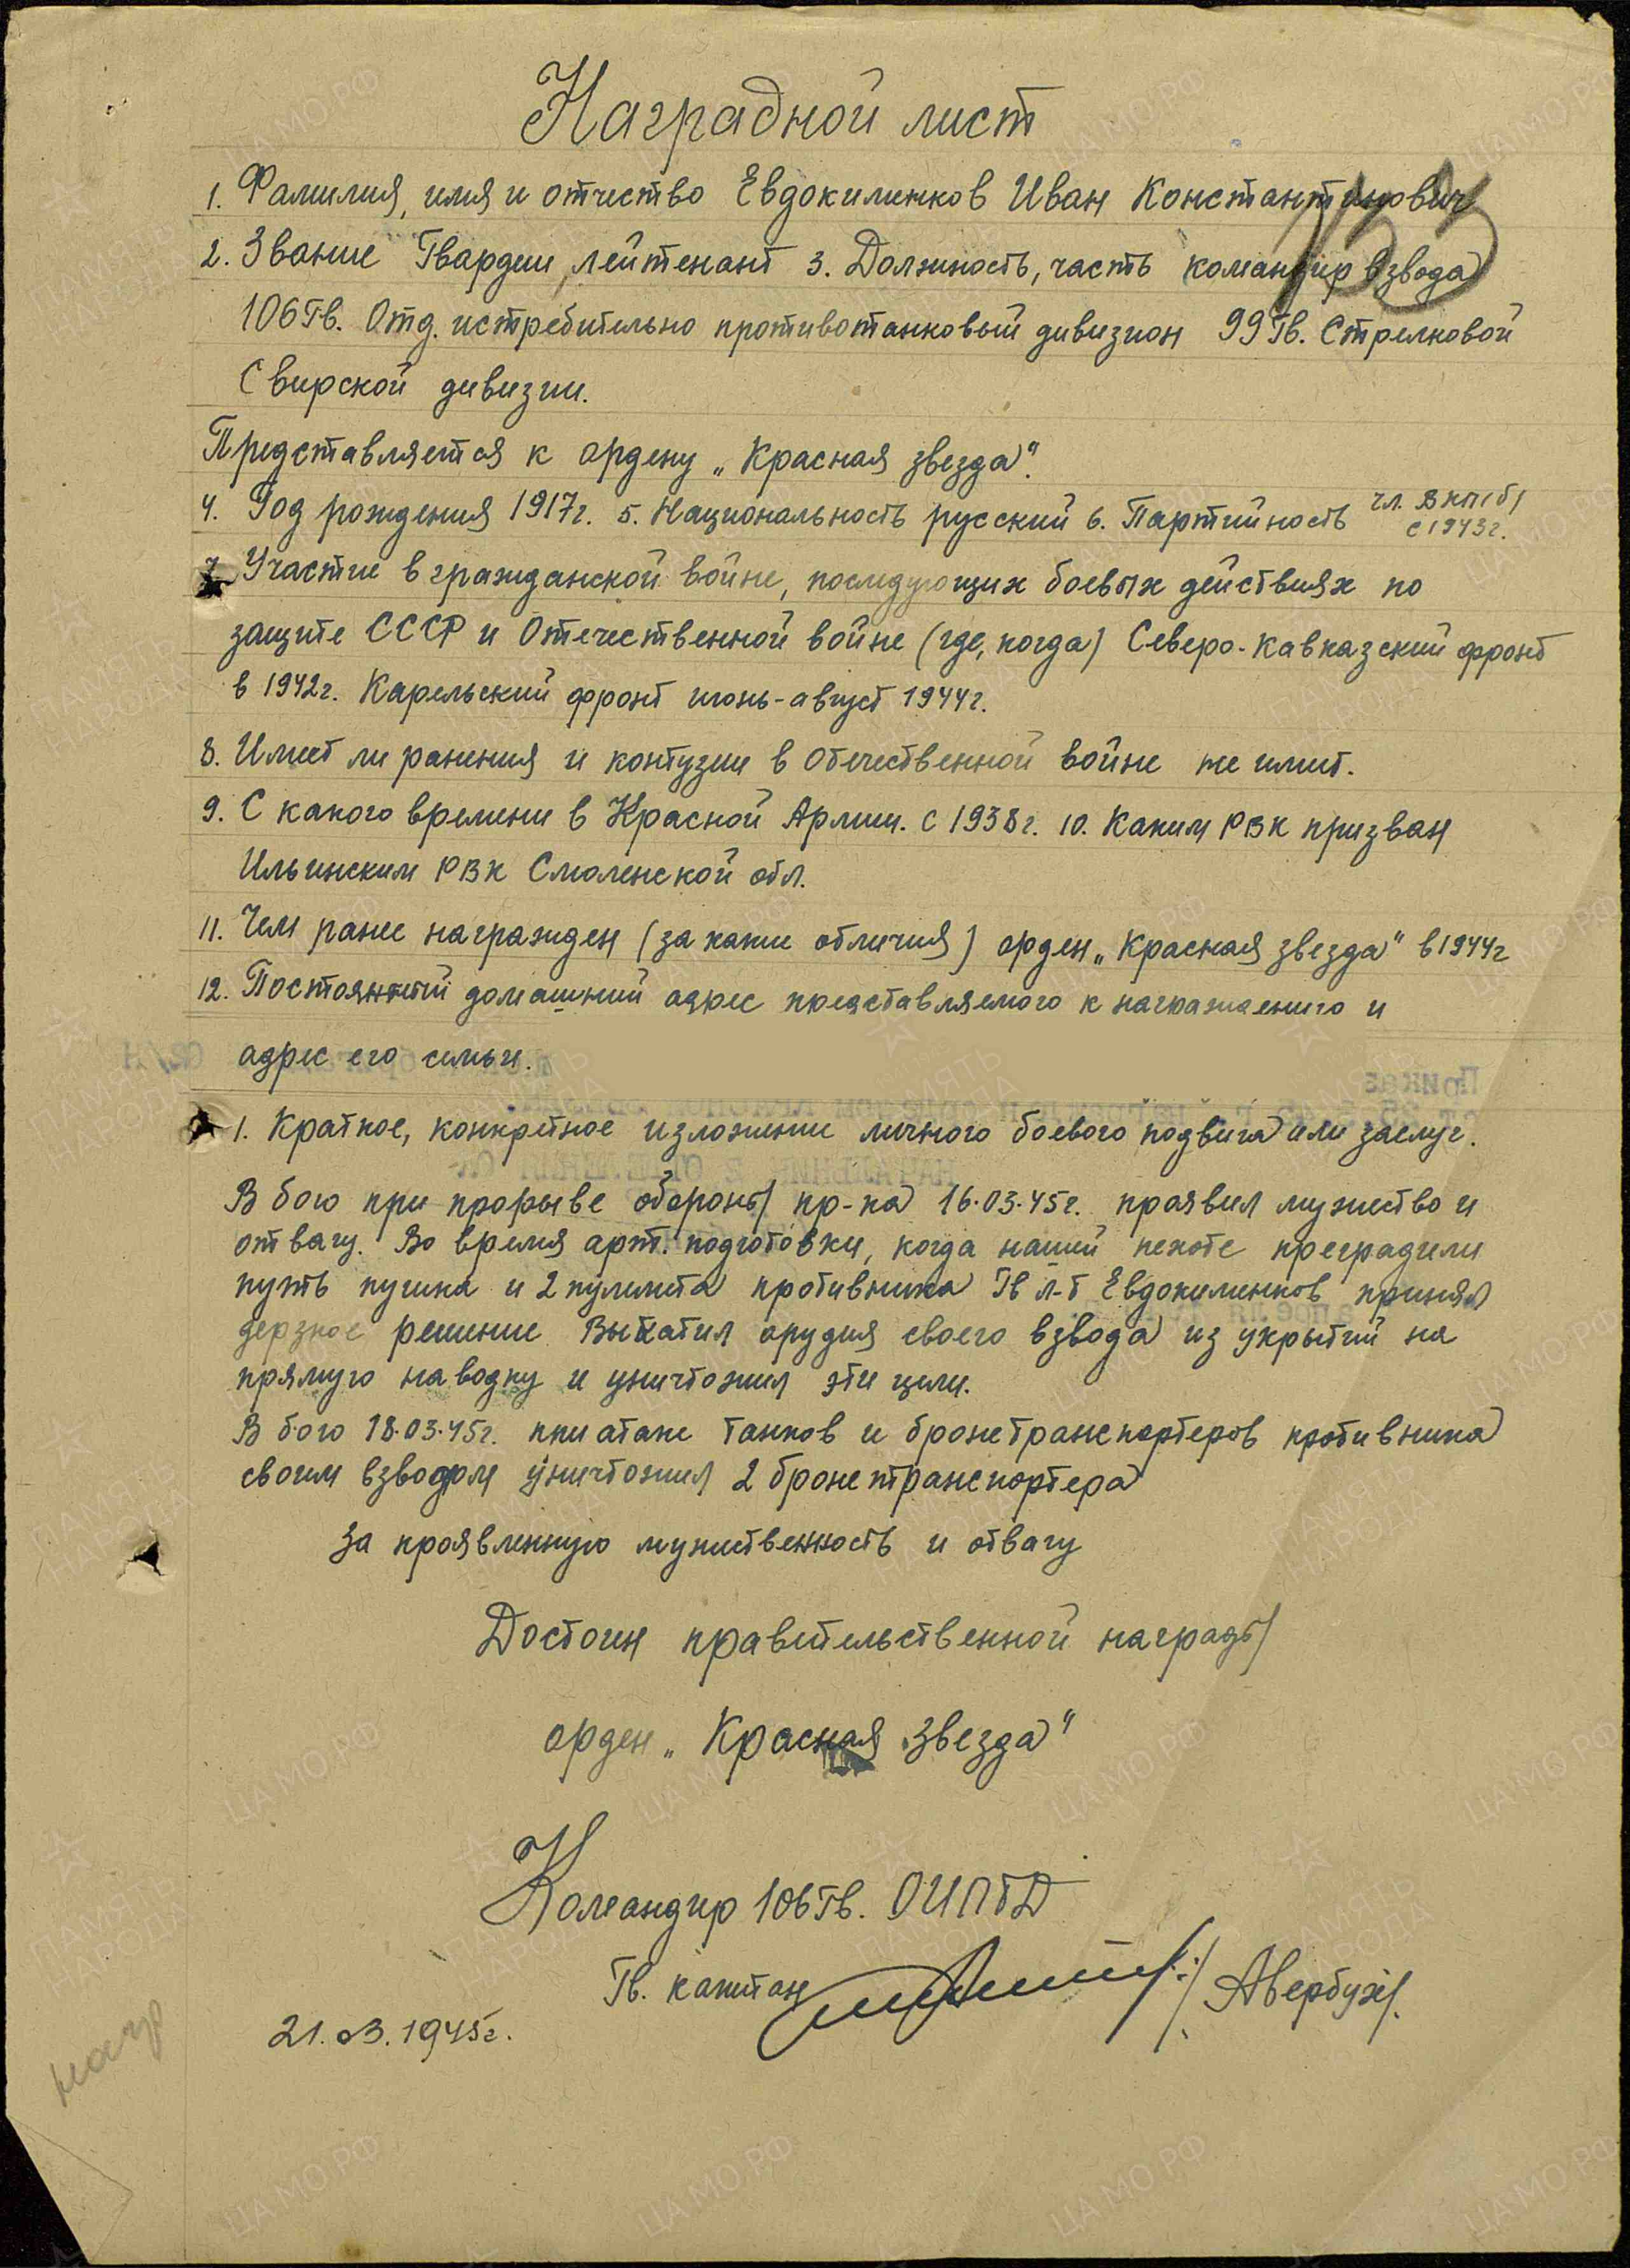 Наградной лист
1. Фамилия, имя и отчество Евдокименков Иван Константинович
2. Звание Гвардии лейтенант 3. Должность, часть командир взвода
106 Гв. Отд. истребительно противотанковый дивизион 99 Гв. Стрелковой
Свирской дивизии.
Представляется к ордену „Красная звезда".
4. Год рождения 1917г. 5. Национальность русский 6. Партийность чл. ВКП(б)
с 1943г.
7. Участие в гражданской войне, последующих боевых действиях по
защите СССР и Отечественной войне (где, когда) Северо-Кавказский фронт
в 1942г. Карельский фронт июнь-август 1944г.
8. Имеет ли ранения и контузии в Отечественной войне не имеет.
9. С какого времени в Красной Армии. с 1938г. 10. Каким РВК призван
Ильинским РВК Смоленской обл.
11. Чем ранее награжден (за какие отличия) орден „Красная звезда" в 1944г
12. Постоянный домашний адрес представляемого к награждению и
адрес его семьи.
1. Краткое, конкретное изложение личного боевого подвига или заслуг.
В бою при прорыве обороны пр-ка 16.03.45г. проявил мужество и
отвагу. Во время арт. подготовки, когда нашей пехоте преградили
путь пушка и 2 пулемета противника Гв л-т Евдокименков принял
дерзкое решение. Выкатил орудия своего взвода из укрытий на
прямую наводку и уничтожил эти цели.
В бою 18.03.45г. при атаке танков и бронетранспортеров противника
своим взводом уничтожил 2 бронетранспортера
За проявленную мужественность и отвагу
Достоин правительственной награды
орден „Красная Звезда"
Командир 106 Гв. ОИПТД
Гв. капитан /Авербух/.
21.03.1945г.
нагр